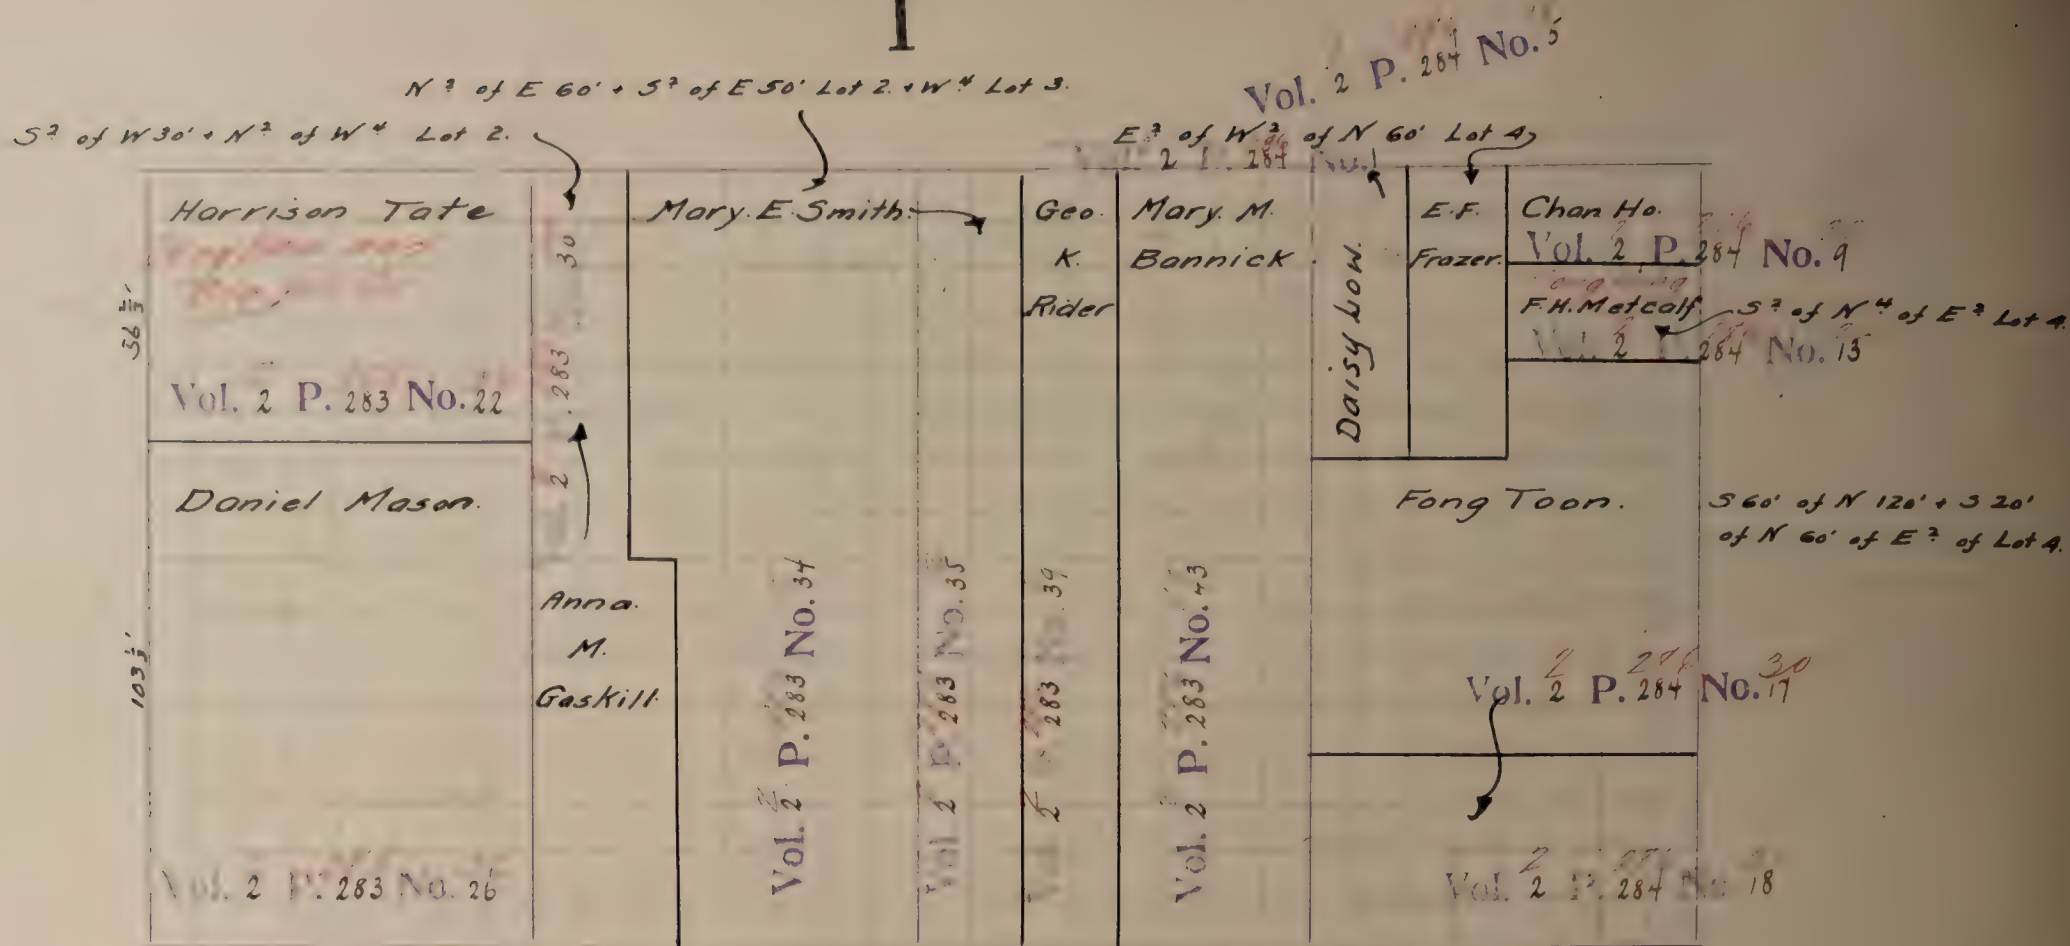 1
Vol. 2 P. 284 No. 5
N² of E 60' + S² of E 50' Lot 2. + W⁴ Lot 3.
S² of W 30' + N² of W⁴ Lot 2.
E² of W² of N 60' Lot 4
2 284 No. 1
Harrison Tate
36 2/3'
Vol. 2 P. 283 No. 22
2 P. 283 30
Mary. E. Smith.
Geo.
K.
Rider
Mary. M.
Bannick
Daisy Low.
E.F.
Frazer.
Chan Ho.
Vol. 2 P. 284 No. 9
F.H. Metcalf.
S² of N⁴ of E² Lot 4.
Vol. 2 284 No. 13
Daniel Mason.
103 1/3'
Vol. 2 P. 283 No. 26
Anna.
M.
Gaskill.
Vol. 2 P. 283 No. 34
Vol. 2 P. 283 No. 35
Vol. 2 283 No. 39
Vol. 2 P. 283 No. 43
Fong Toon.
S 60' of N 120' + S 20'
of N 60' of E² of Lot 4.
Vol. 2 P. 284 No. 17
Vol. 2 P. 284 No. 18